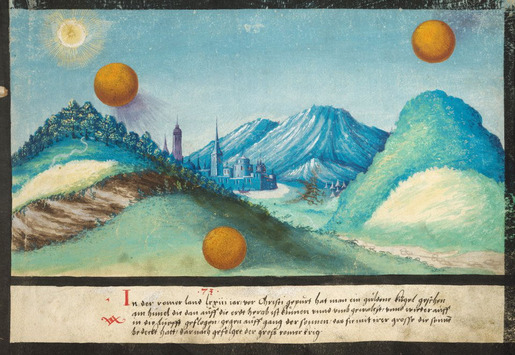 · 73 ·
In der romer land lxxiii iar vor Christi gepurt hat man ein guldene kugel gesehen
am himel die dan auff die erdt herab ist kumen unnd umb gewalczt unnd wider auff
in die lufft geflogen gegen auff gang der sonnen das sie mit irer grosse die sonne
bedeckt hatt dar nach gefolget der groß romer krieg